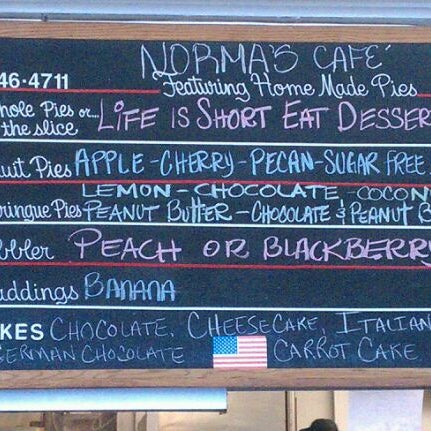 NORMA'S CAFE'
46·4711 Featuring Home Made Pies
hole Pies or... LIFE IS SHORT EAT DESSER
the slice
uit Pies APPLE - CHERRY - PECAN - SUGAR FREE
LEMON - CHOCOLATE, COCON
ringue Pies PEANUT BUTTER - CHOCOLATE & PEANUT B
bbler PEACH OR BLACKBERRY
uddings BANANA
KES CHOCOLATE, CHEESECAKE, ITALIAN
GERMAN CHOCOLATE CARROT CAKE